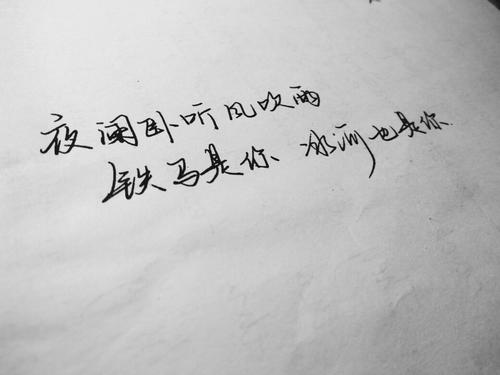 夜阑卧听风吹雨
铁马是你 冰河也是你